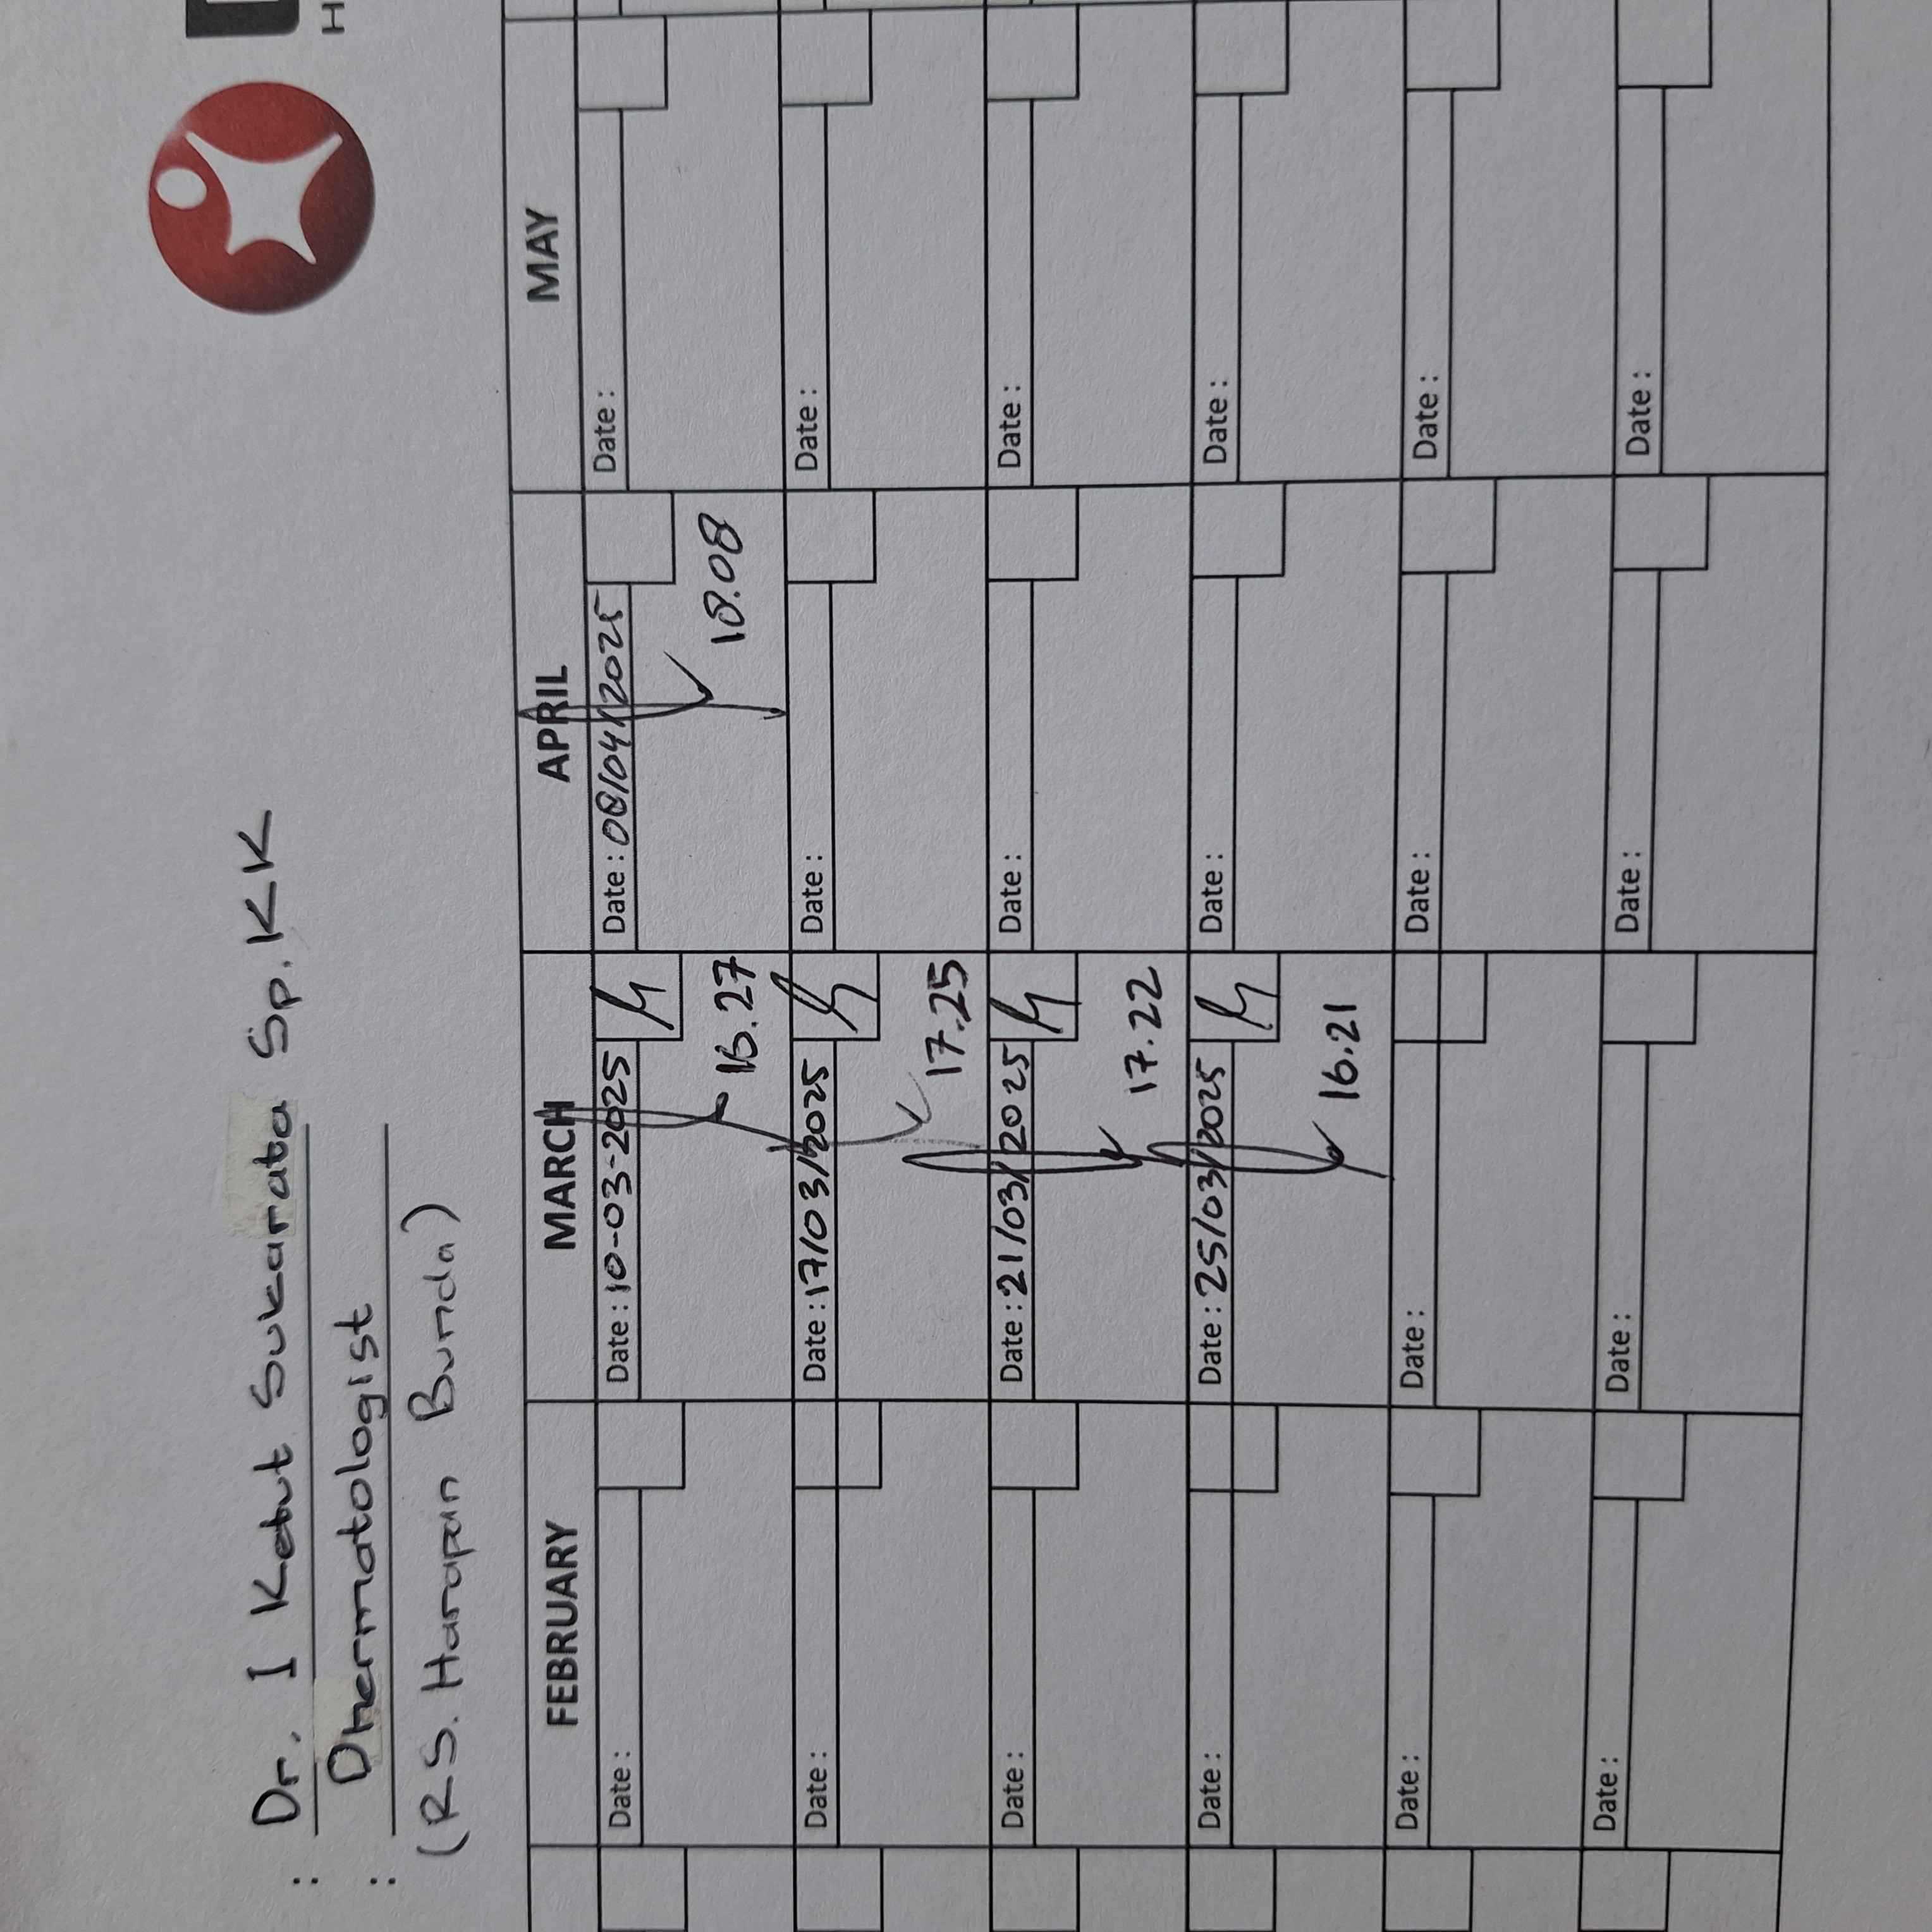 : Dr. I Ketut Sukarata Sp.KK
: Dhermatologist
(RS. Harapan Bunda)
H
FEBRUARY MARCH APRIL MAY
Date : Date : 10-03-2025 Date : 08/04/2025 Date :
16.27 18.08
Date : Date : 17/03/2025 Date : Date :
17.25
Date : Date : 21/03/2025 Date : Date :
17.22
Date : Date : 25/03/2025 Date : Date :
16.21
Date : Date : Date : Date :
Date : Date : Date : Date :